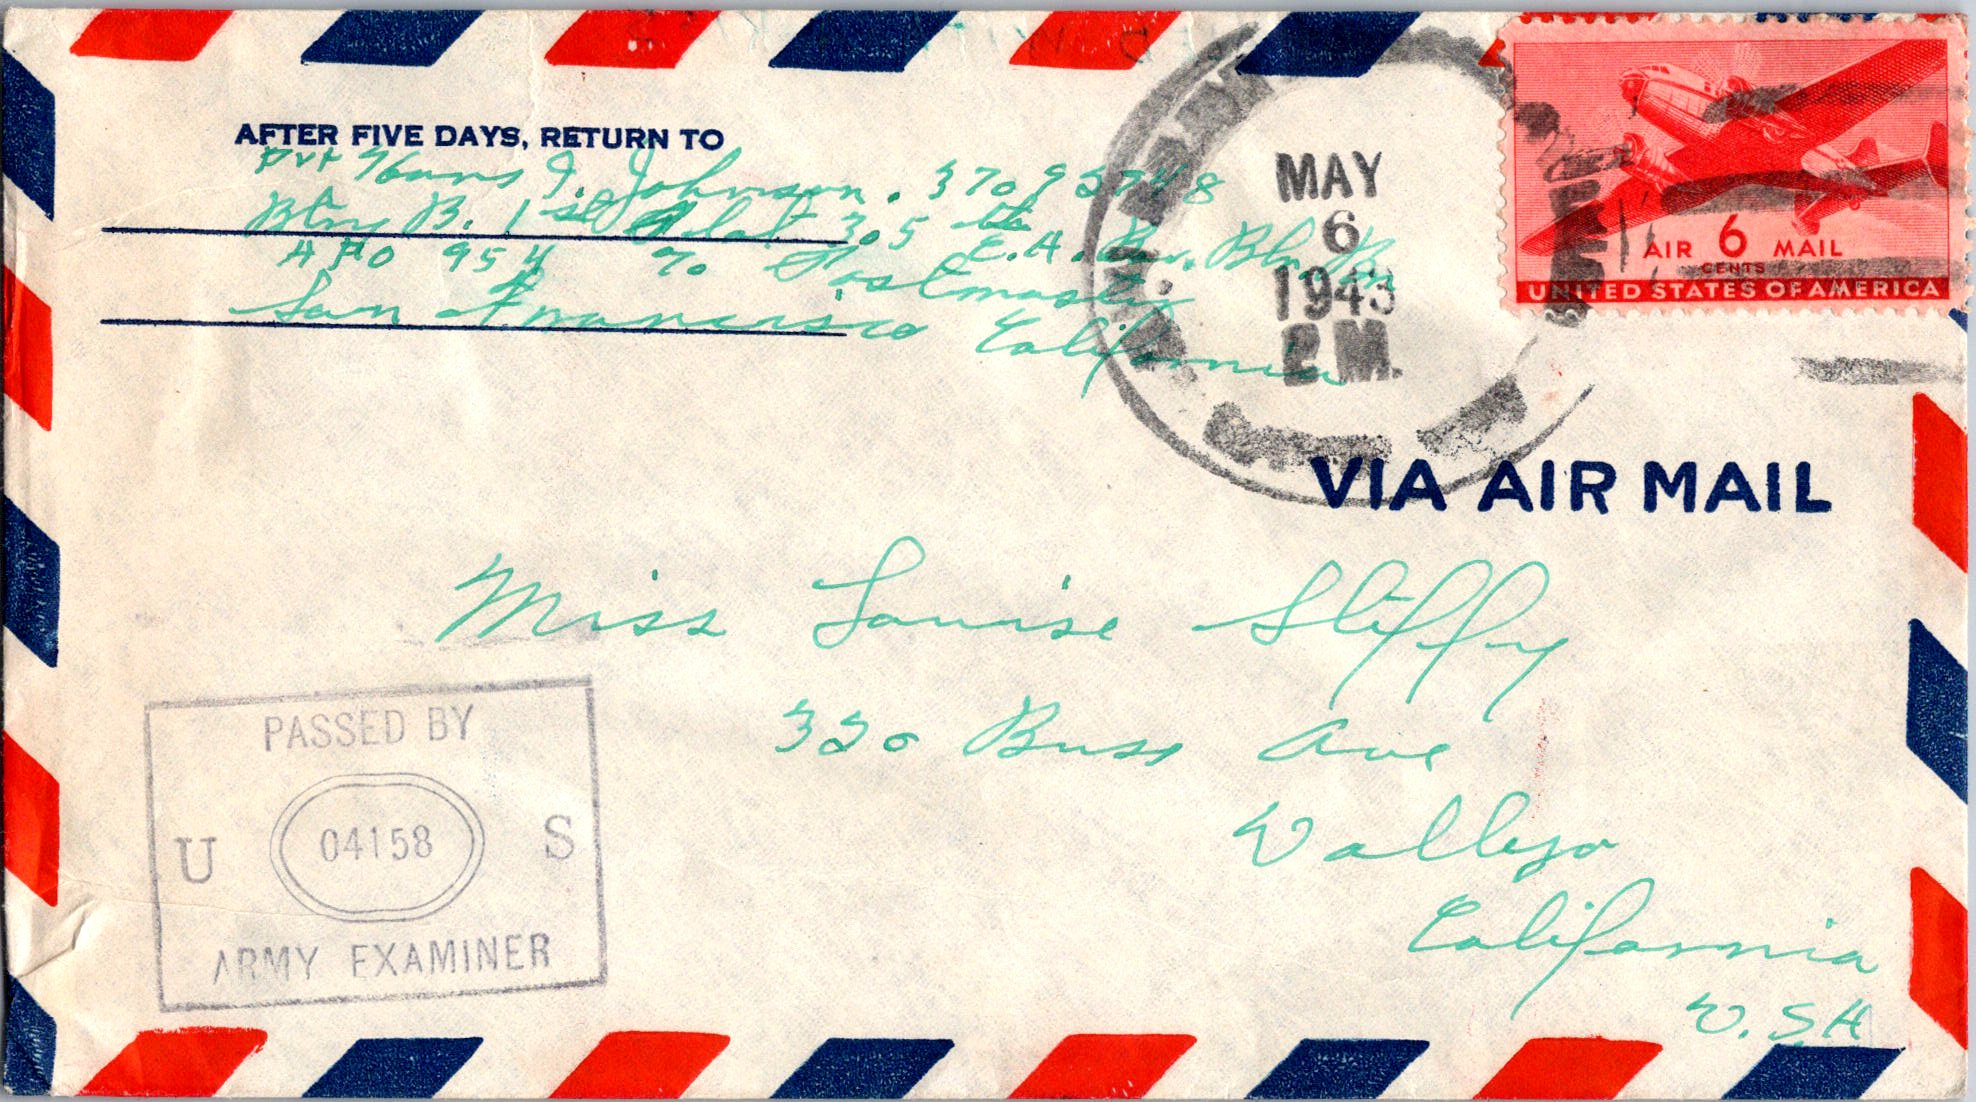 AFTER FIVE DAYS, RETURN TO
Pvt Hans J. Johnson. 37095748
Btry B. 1st Plat 305th C.A. Bar. Bln. Bn
APO 954 % Postmaster
San Francisco California
MAY
6
1943
P.M.
AIR 6 MAIL
CENTS
UNITED STATES OF AMERICA
VIA AIR MAIL
Miss Louise Stiffy
320 Buss Ave
Vallejo
California
U.S.A
PASSED BY
U 04158 S
ARMY EXAMINER